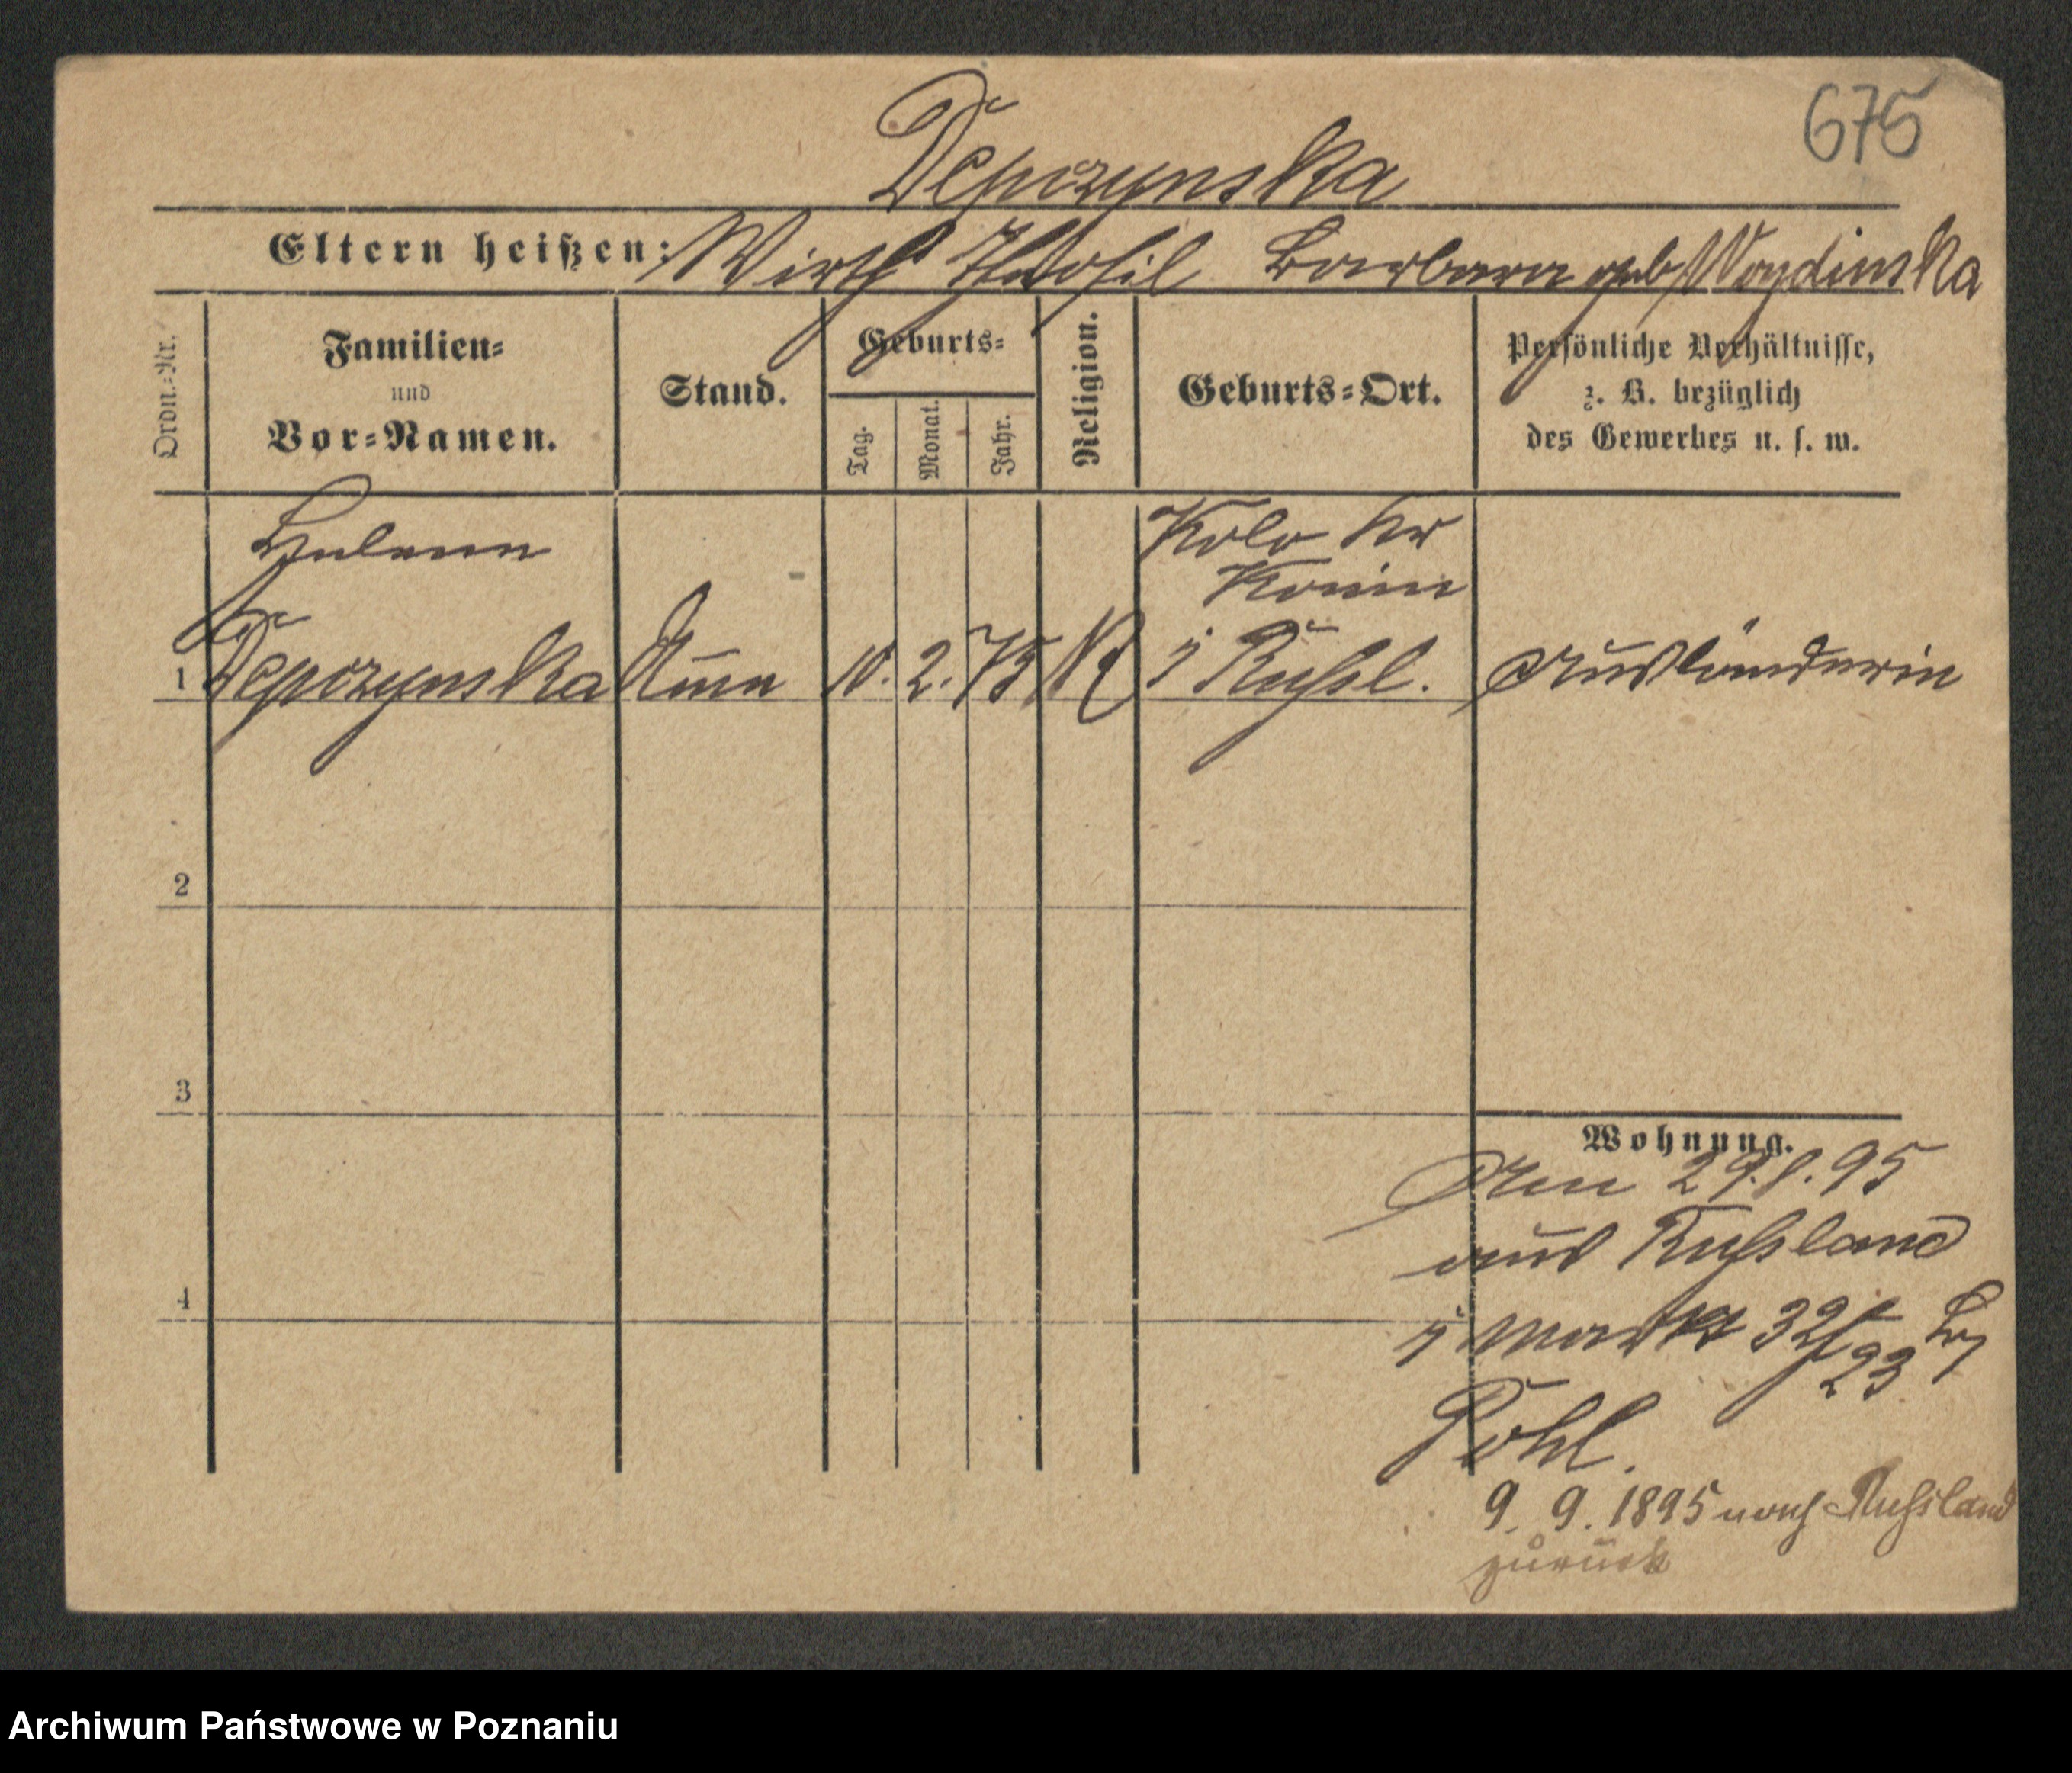 675
Depczynska
Eltern heißen: Wirth Theofil Barbara geb Woydinska
Ordn.=Nr.
Familien=
und
Vor=Namen.
Stand.
Geburts=
Tag.
Monat.
Jahr.
Religion.
Geburts=Ort.
Persönliche Verhältnisse,
z. B. bezüglich
des Gewerbes u. s. w.
Helene
Kolo Kr
Konin
1 Depczynska 2. 75 i Rußl. Ausländerin
2
3
4
Wohnung.
Am 29.8.95
aus Russland
Markt 32/23
Pohl.
9. 9. 1895 nach Russland
zurück
Archiwum Państwowe w Poznaniu